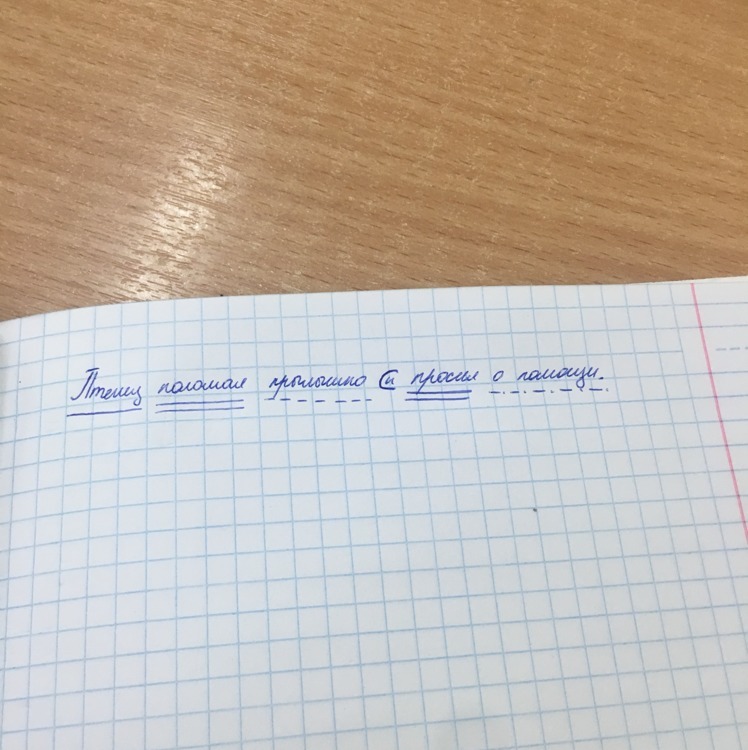 Птенец поломал крылышко и просил о помощи.